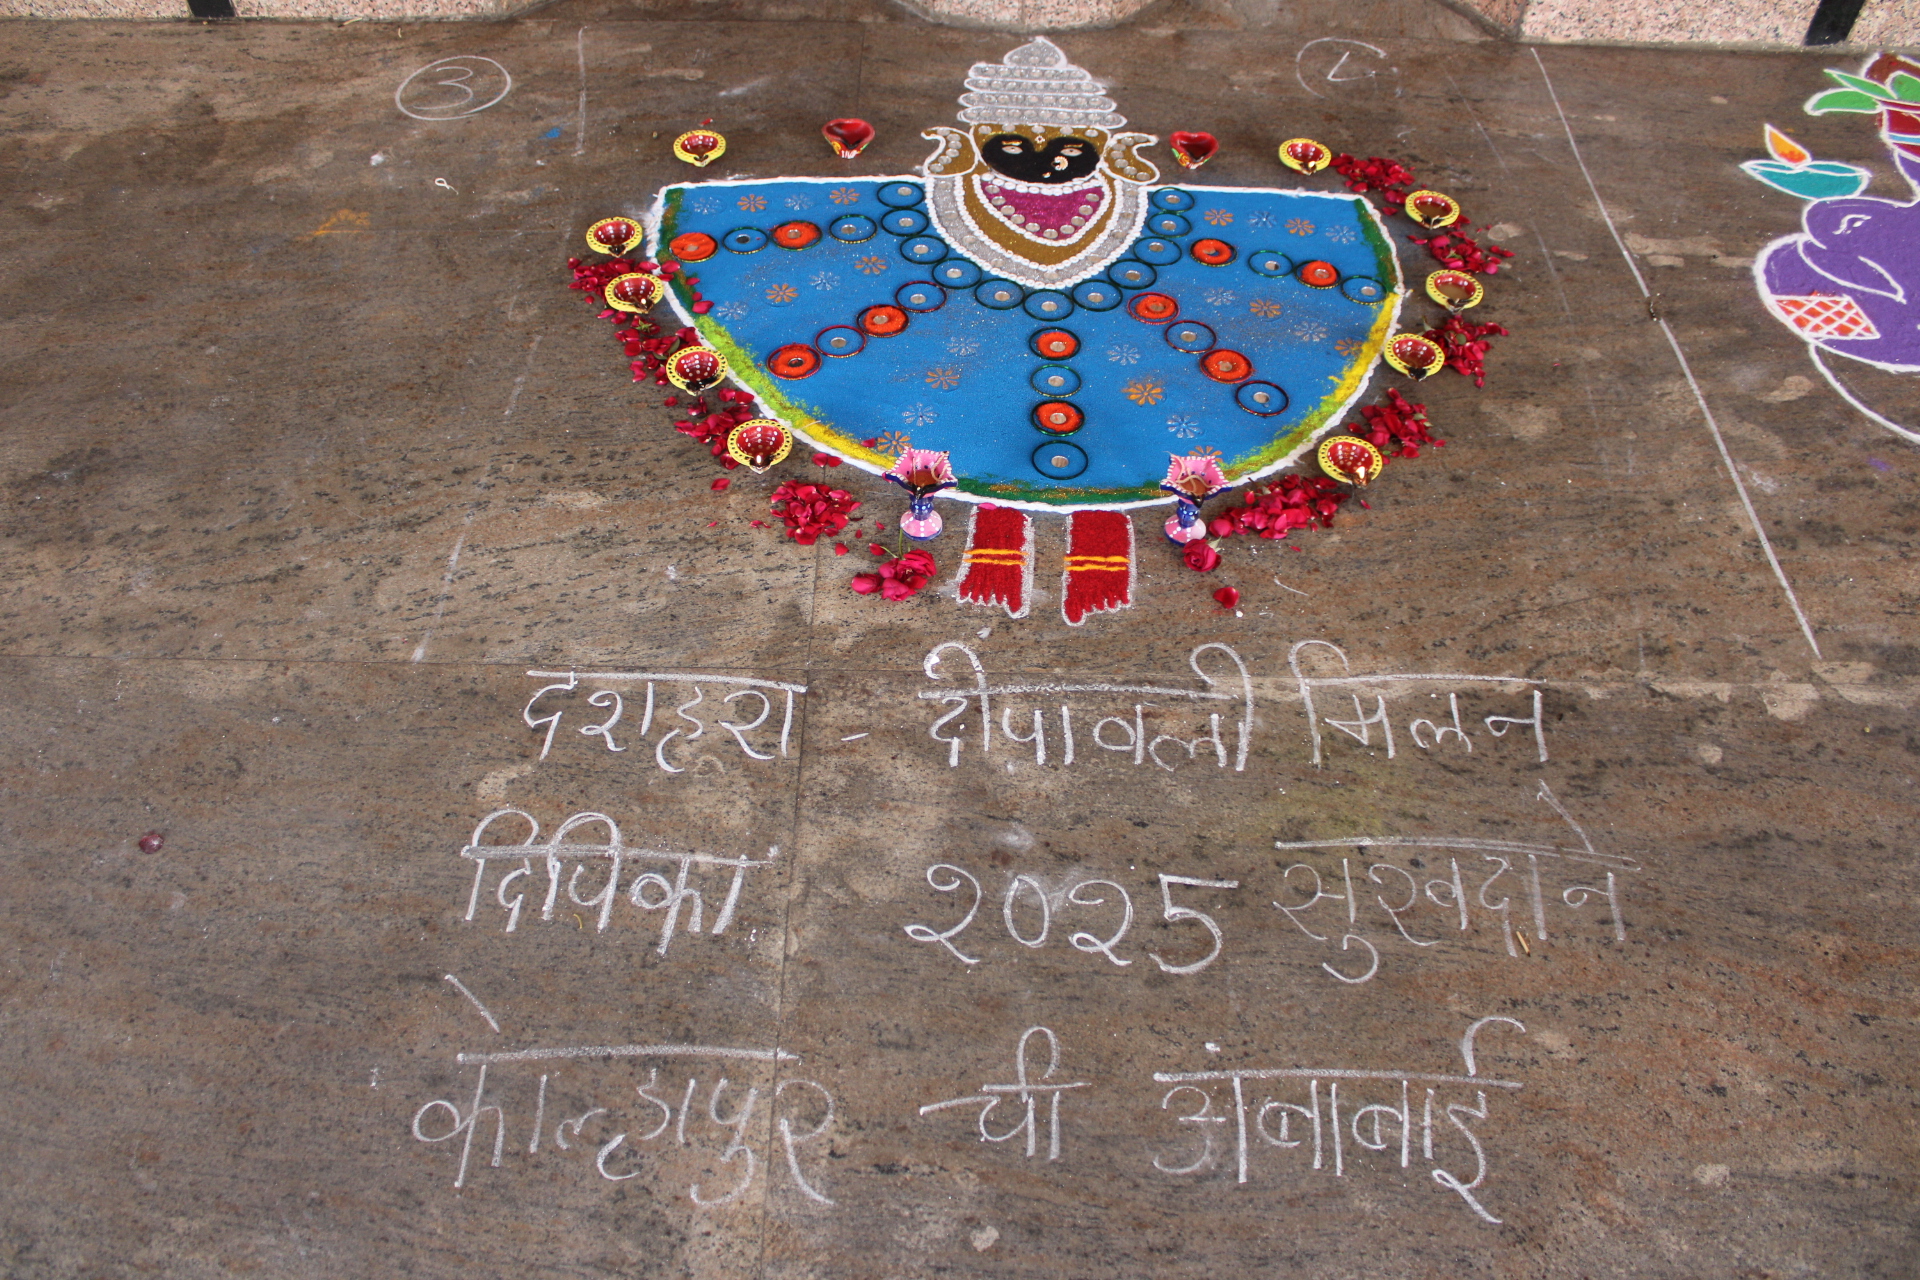 3
दशहरा - दीपावली मिलन
दिपिका 2025 सुखदाने
कोल्हापुर ची अंबाबाई